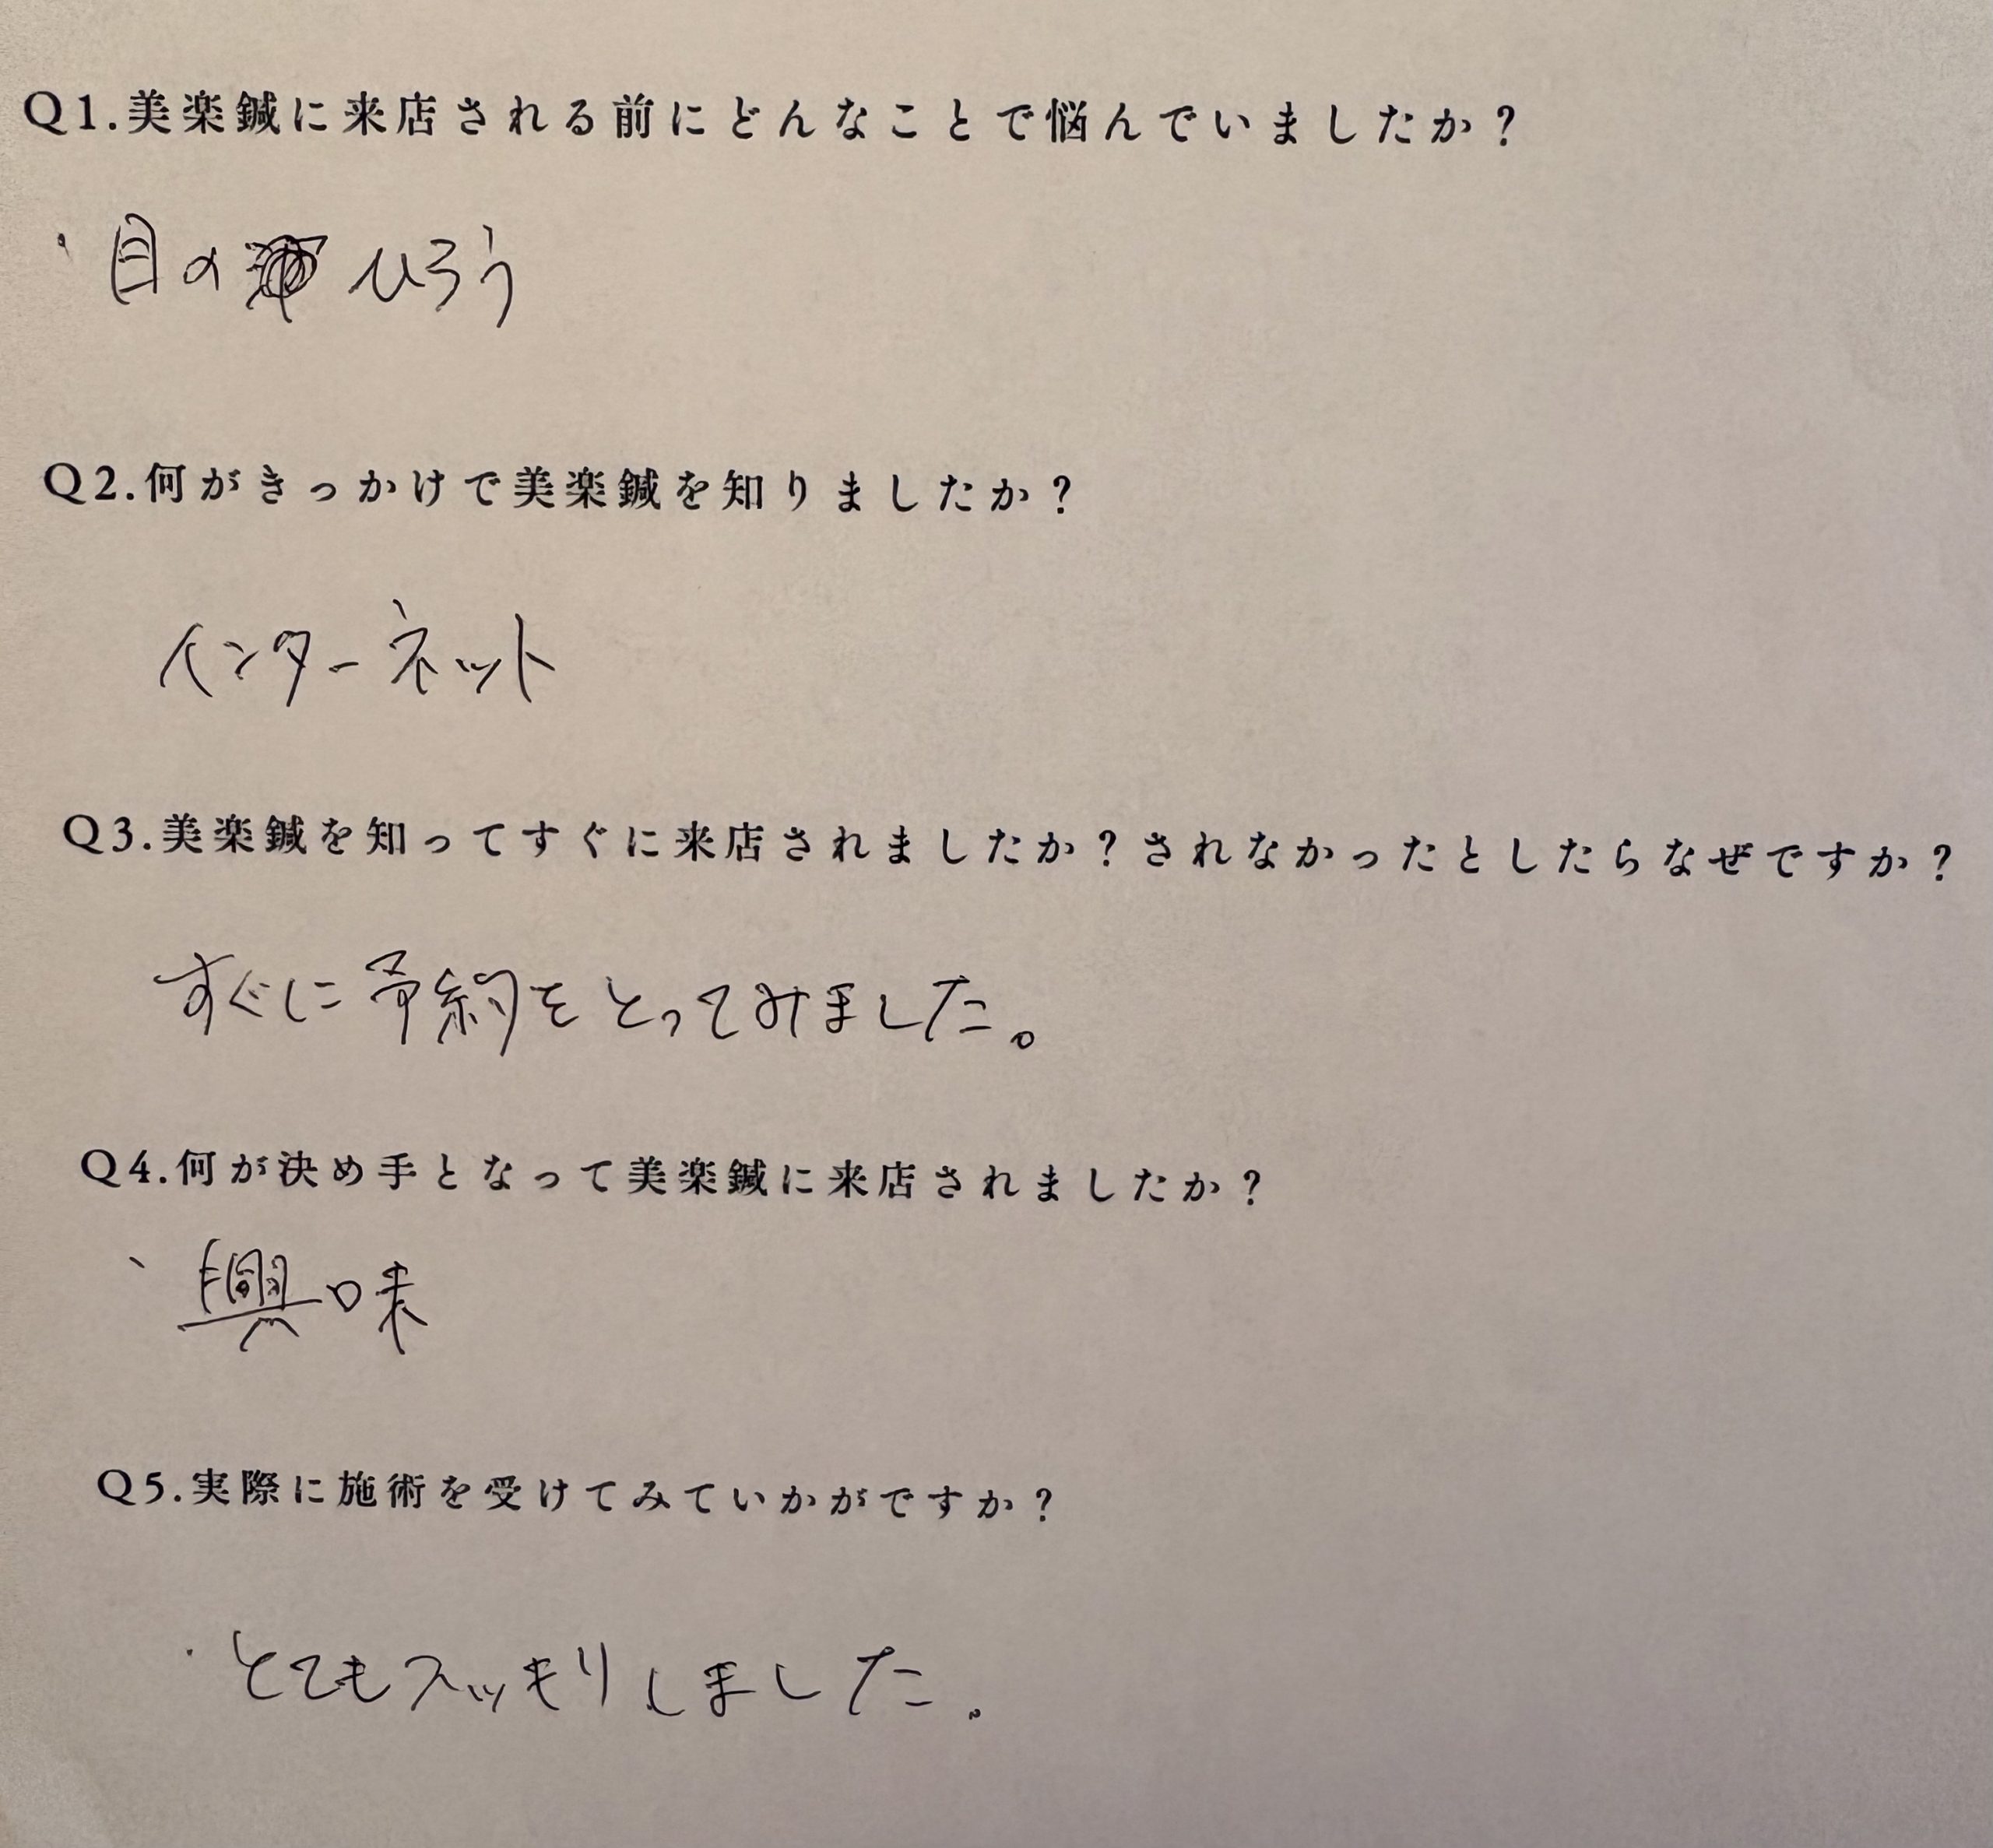 Q1.美楽鍼に来店される前にどんなことで悩んでいましたか？
・目のひろう
Q2.何がきっかけで美楽鍼を知りましたか？
インターネット
Q3.美楽鍼を知ってすぐに来店されましたか？されなかったとしたらなぜですか？
すぐに予約をとってみました。
Q4.何が決め手となって美楽鍼に来店されましたか？
、興味
Q5.実際に施術を受けてみていかがですか？
・とてもスッキリしました。